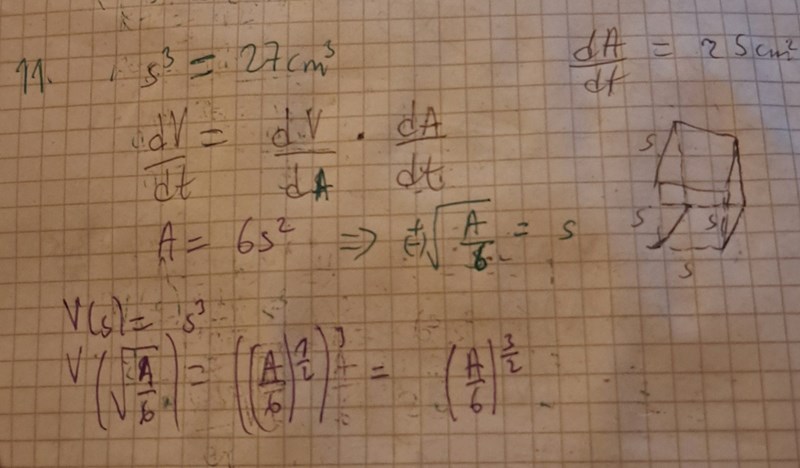 11. s³ = 27cm³ dA/dt = 25cm²
dV/dt = dV/dA · dA/dt
A = 6s² => (±)√(A/6) = s
s
s
s
s
V(s) = s³
V(√(A/6)) = ((A/6)^(1/2))³ = (A/6)^(3/2)